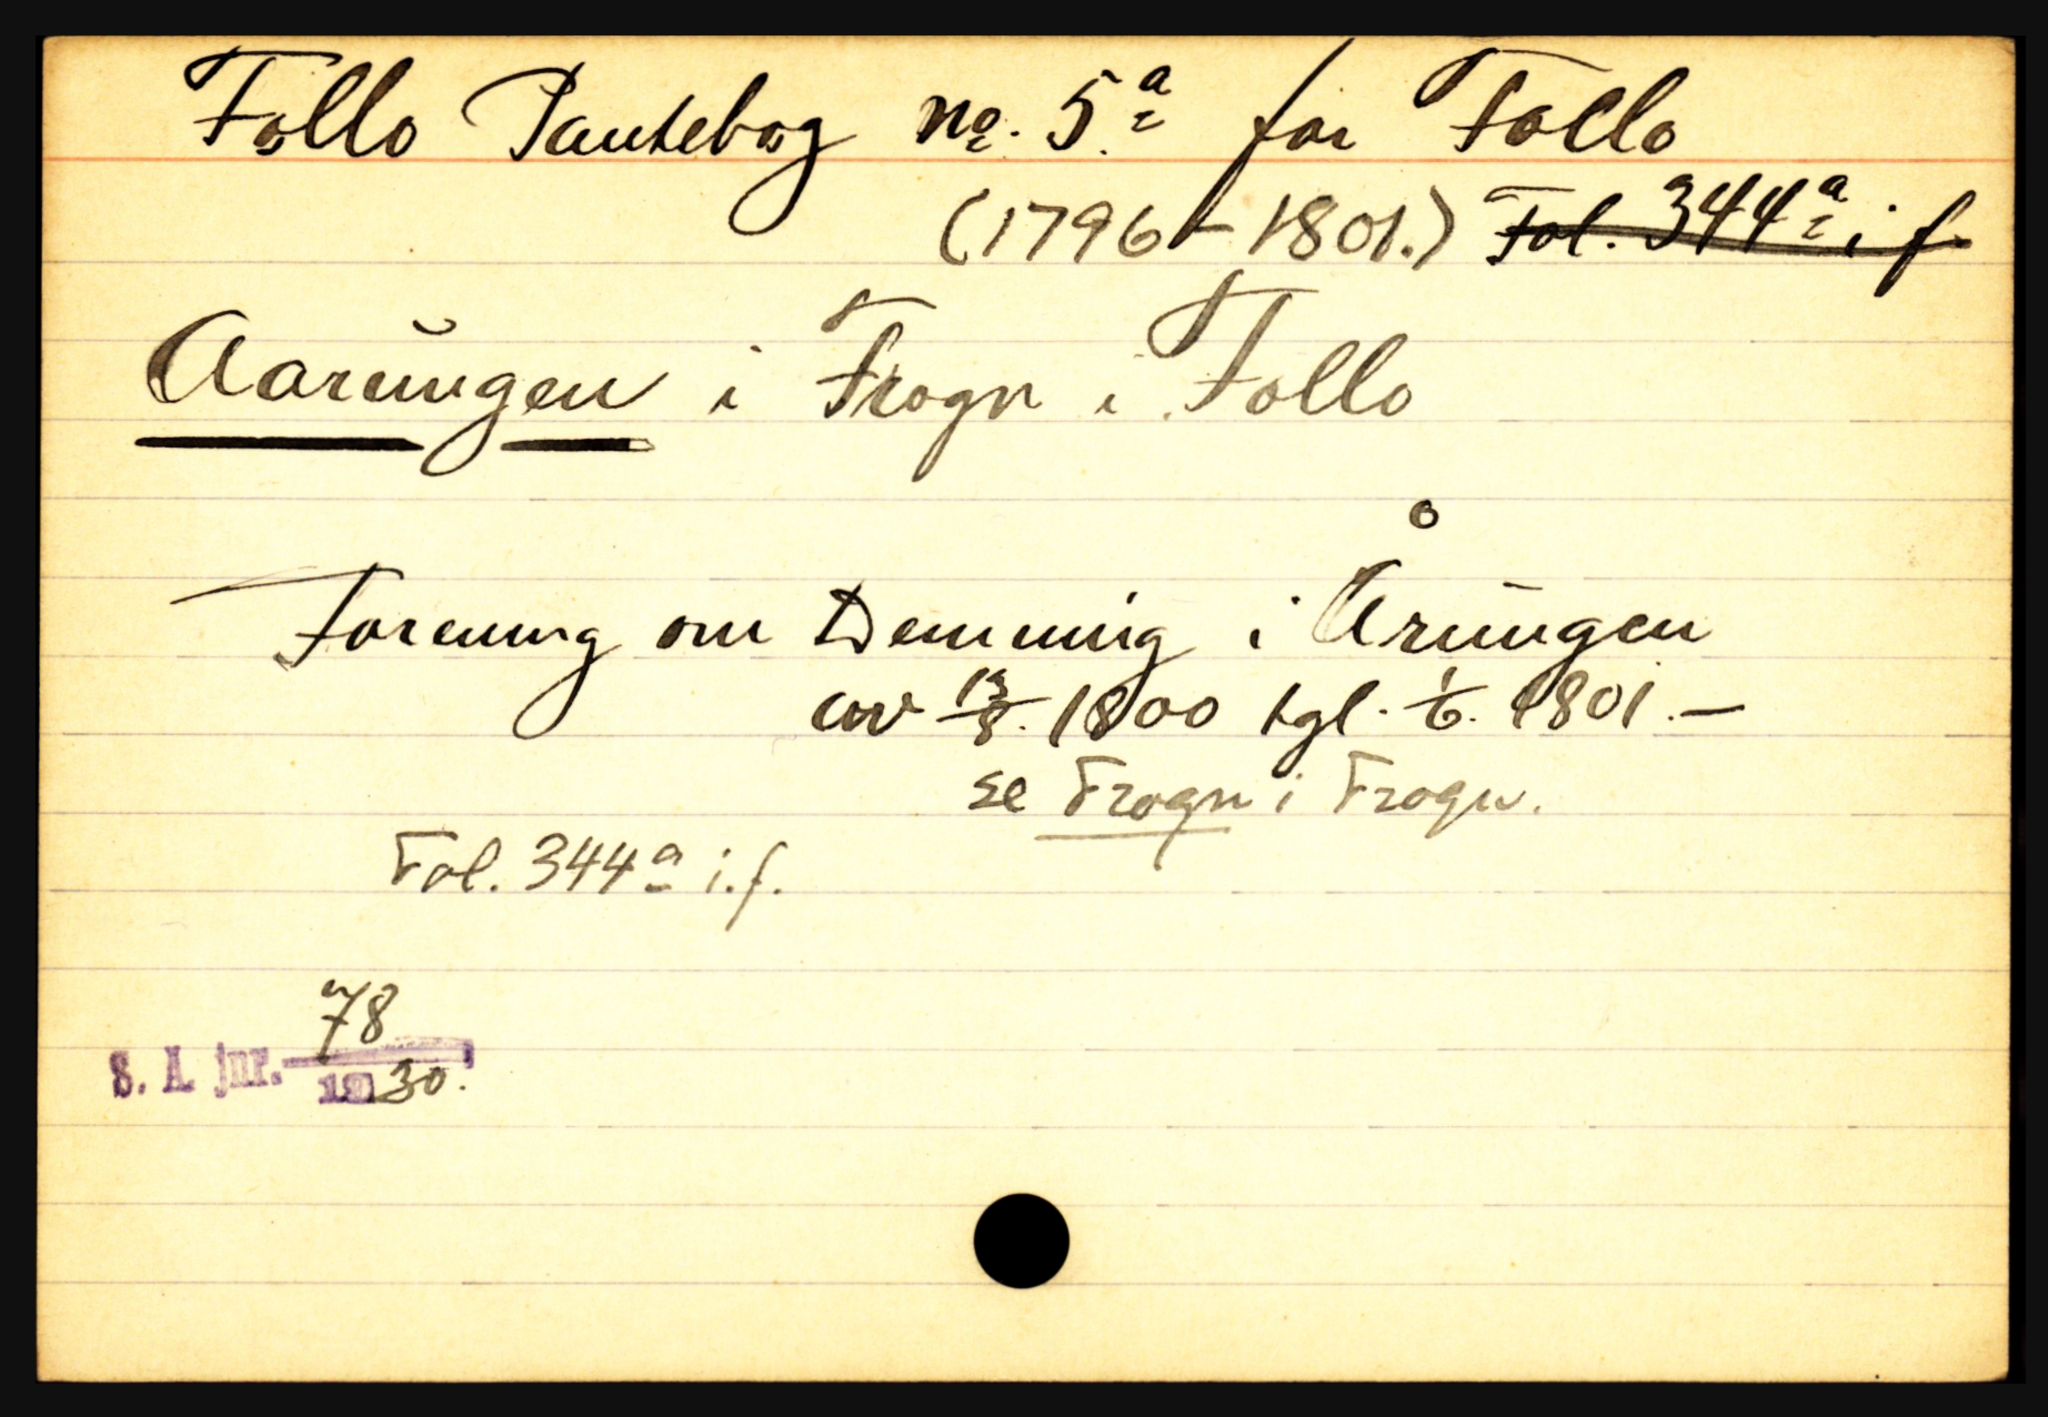 Follo Pantebog No. 5a for Follo
(1796–1801.) Fol. 344a i f.
Aarungen i Frogn i Follo
Forening om Demning i Årungen
av 13/8. 1800 tgl. 1/6. 1801.–
se Frogn i Frogn.
Fol. 344a i.f.
S. A. jnr. 78/1930.